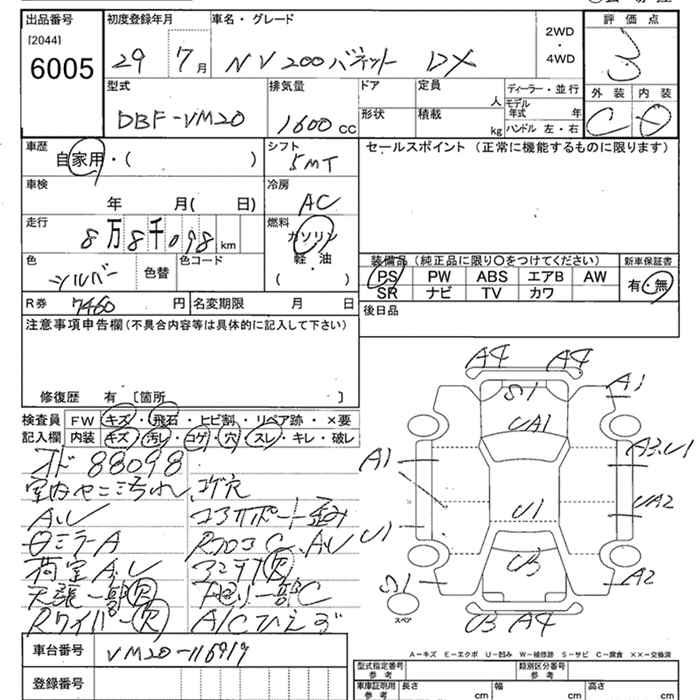 出品番号 初度登録年月 車名・グレード 評価点
[2044]
6005 29 7月 NV200バネット DX 2WD・4WD 3
型式 排気量 ドア 定員 人 ディーラー・並行 外装 内装
DBF-VM20 1600cc 形状 積載 kg モデル年式 年 ハンドル 左・右 C D
車歴 自家用・( ) シフト 5MT セールスポイント (正常に機能するものに限ります)
車検 年 月( 日) 冷房 AC
走行 8万8千098km 燃料 ガソリン 軽・油 ( )
色 シルバー 色替 色コード
装備品(純正品に限り〇をつけてください) 新車保証書
PS PW ABS エアB AW 有・無
SR ナビ TV カワ
R券 7460円 名変期限 月 日 後日品
注意事項申告欄(不具合内容等は具体的に記入して下さい)
修復歴 有 〔箇所 〕
検査員 FW キズ・飛石・ヒビ割・リペア跡・×要
記入欄 内装 キズ・汚レ・コゲ・穴・スレ・キレ・破レ
メド 88098
室内ヤニ汚れ、コゲ穴
A、U コアサポート歪み
ロミラーA Rフロア C、A、U
荷室A、U アンテナ欠
天張一部欠 下廻り一部C
Rワイパー欠 A/Cひえず
A4 A4
S1 A1
UA1
A1 A3、U1
U1 UA2
U1
U3
S1 A2
スペア
U3 A4
A-キズ E-エクボ U-凹み W-補修跡 S-サビ C-腐食 ××-交換済
車台番号 VM20-116919
登録番号
型式指定番号 参考 類別区分番号 参考
車庫証明用 参考 長さ cm 幅 cm 高さ cm